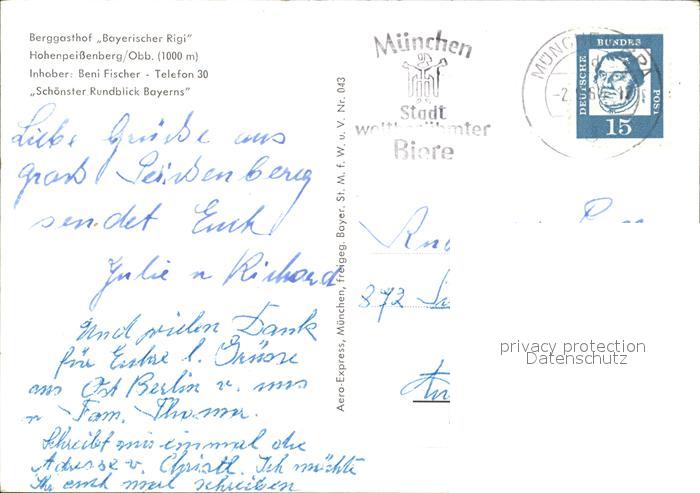 Berggasthof „Bayerischer Rigi"
Hohenpeißenberg/Obb. (1000 m)
Inhaber: Beni Fischer - Telefon 30
„Schönster Rundblick Bayerns"
Liebe Grüße aus
sendet Euch
Julie u Richard
Und vielen Dank
für Eure l. Grüsse
aus Ost Berlin v. uns
u Fam. Thoma.
Schreibt mir einmal die
Adresse v. Christl. Ich möchte
ihr auch mal schreiben
Aero-Express, München, freigeg. Bayer. St. M. f. W. u. V. Nr. 043
München
Stadt
weltberühmter
Biere
MÜNCHEN
DEUTSCHE
BUNDES
POST
15
872
privacy protection
Datenschutz